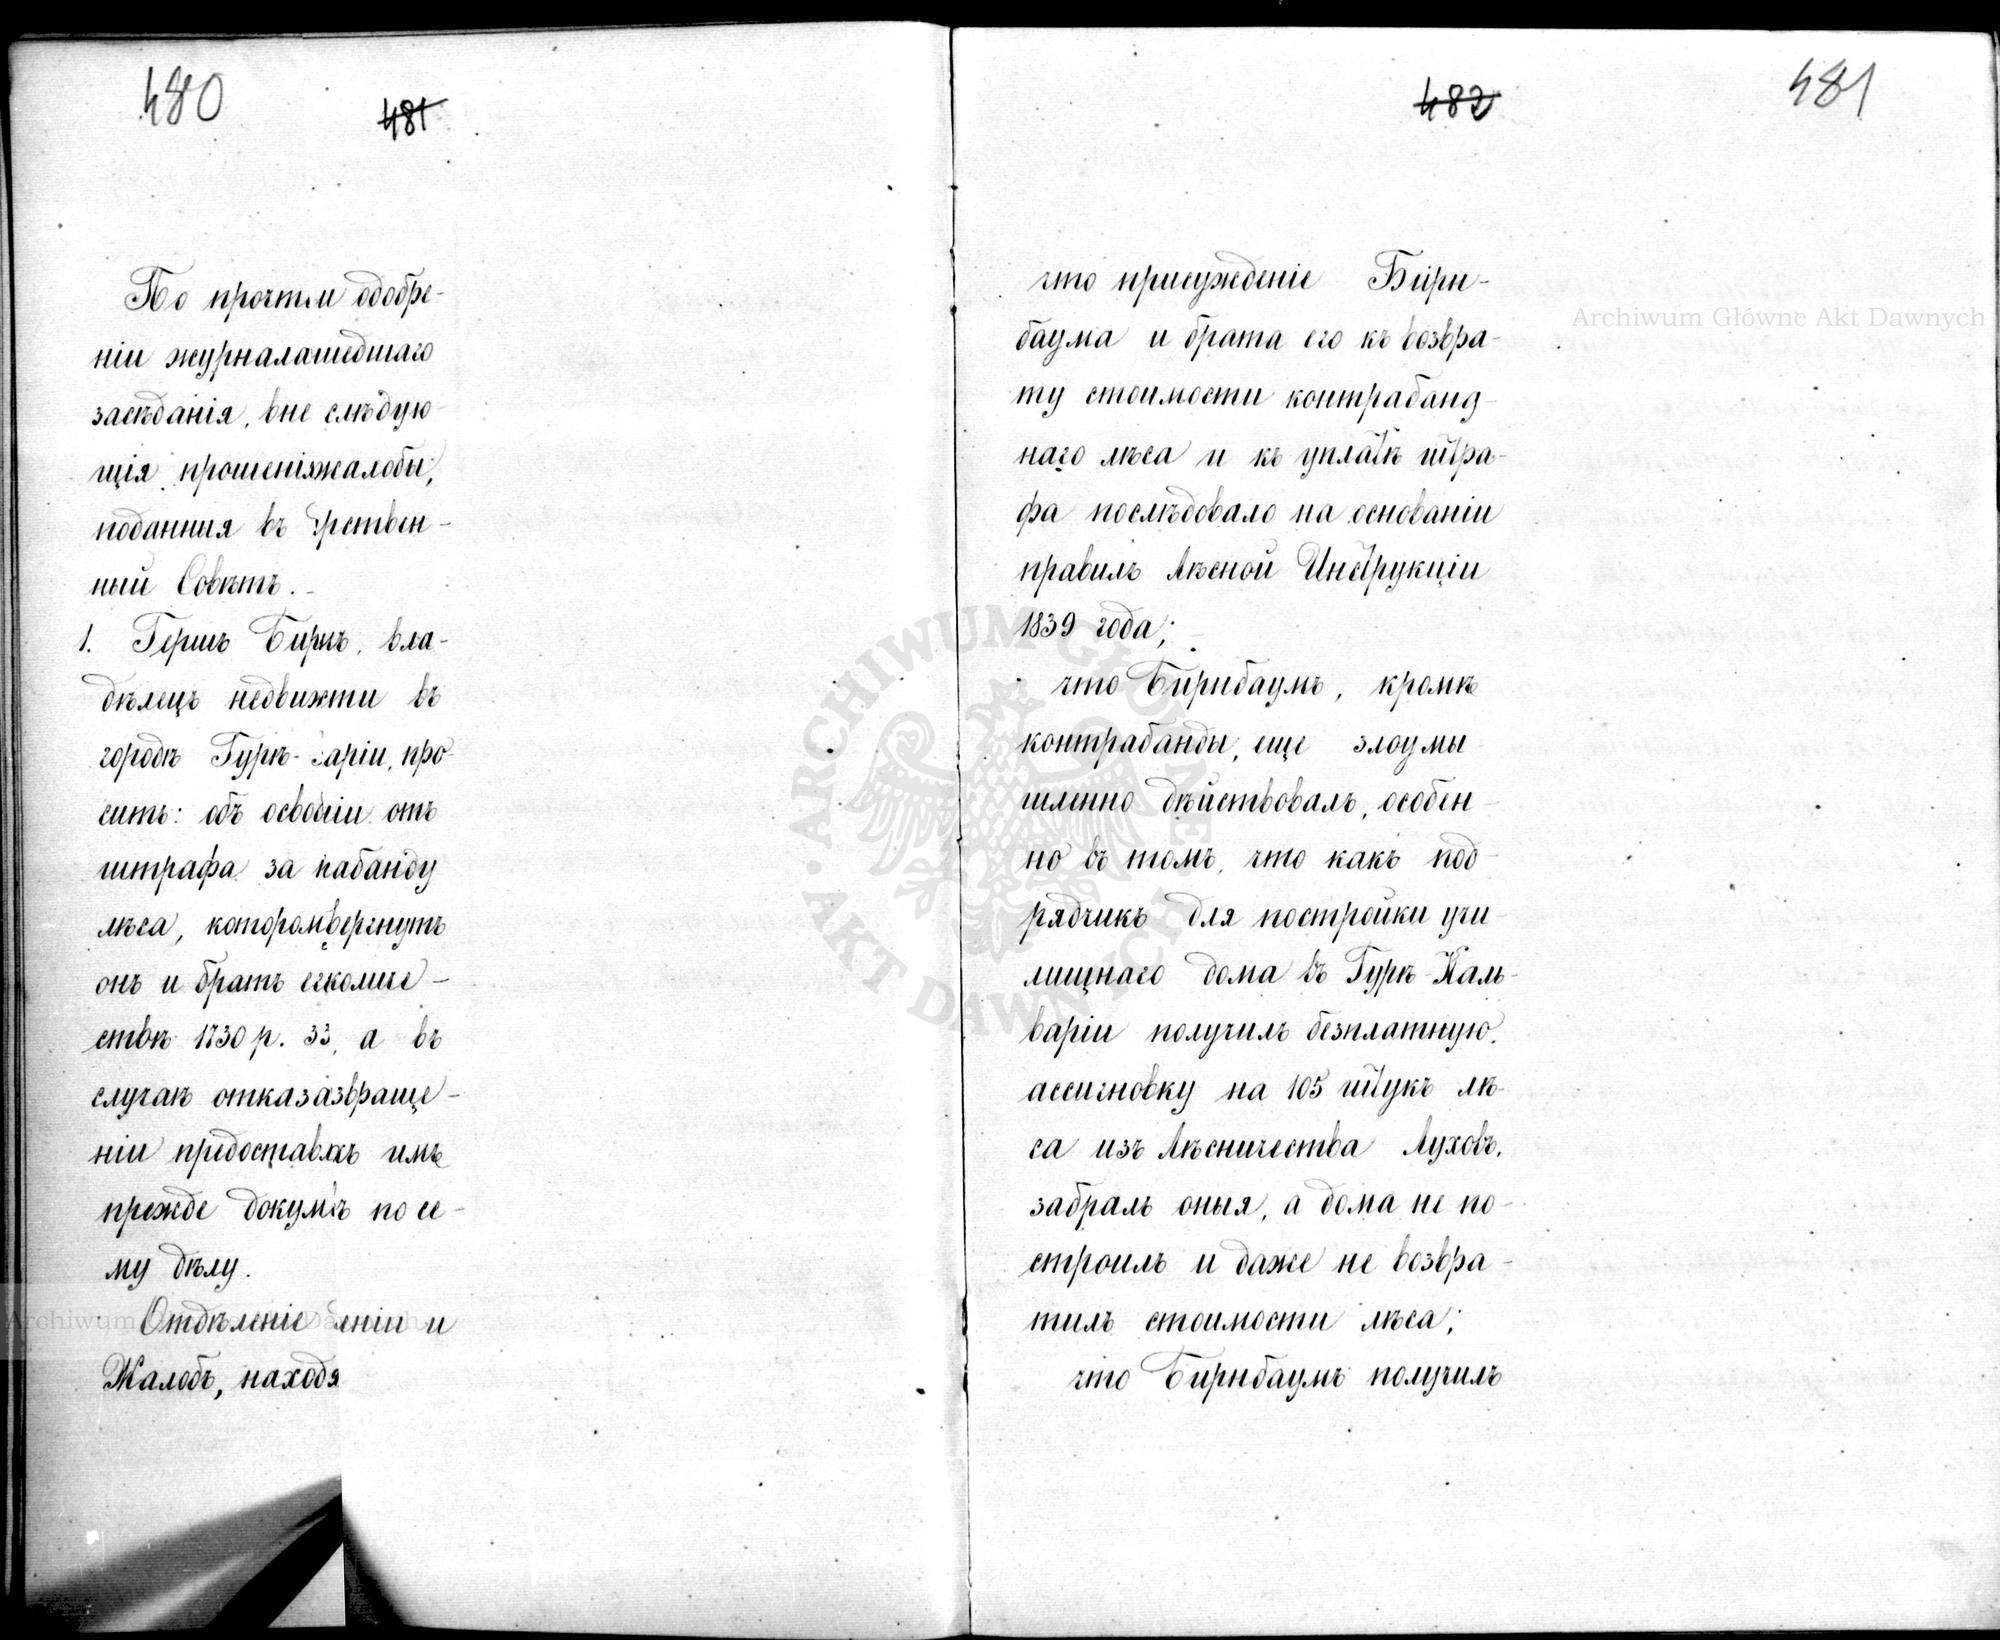 480
481
По прочтіи одобре-
ніи журналашедшаго
засѣданія, вне слѣдую
щія прошеніяжалобы,
поданныя въ рствен-
ный Совѣтъ.
1. Гершъ Бирнъ, вла-
дѣлецъ недвижти въ
городѣ Гурѣ-варіи, про-
ситъ: объ освобіи отъ
штрафа за кабанду
лѣса, которомвергнутъ
онъ и братъ егколиче-
ствѣ 1730 р. 33, а въ
случаѣ отказазвраще-
ніи предоставлхъ имъ
прежде докумъ по се-
му дѣлу.
Отдѣленіе еніи и
Жалобъ, находя
482
481
что присужденіе Бирн-
баума и брата его къ возвра-
ту стоимости контрабанд-
наго лѣса и къ уплатѣ штра-
фа послѣдовало на основаніи
правилъ Лѣсной Инструкціи
1839 года;
что Бирнбаумъ, кромѣ
контрабанды, еще злоумы
шленно дѣйствовалъ, особен-
но въ томъ, что какъ под-
рядчикъ для постройки учи-
лищнаго дома въ Гурѣ-Каль-
варіи получилъ безплатную
ассигновку на 105 штукъ лѣ-
са изъ Лѣсничества Луховъ,
забралъ оныя, а дома не по-
строилъ и даже не возвра-
тилъ стоимости лѣса;
что Бирнбаумъ получилъ
Archiwum Główne Akt Dawnych
ARCHIWUM GŁÓWNE AKT DAWNYCH